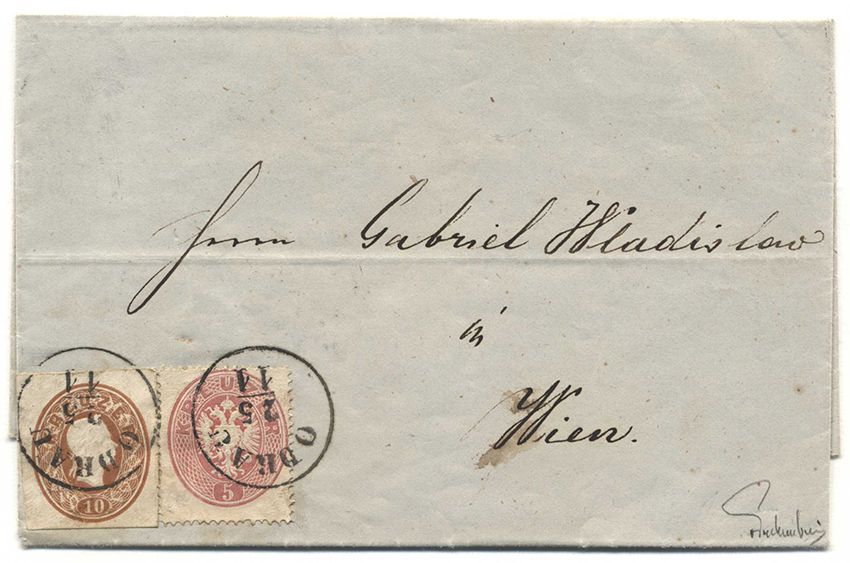 Herrn Gabriel Wladislaw
in
Wien.
ODRAU
25
11
ODRAU
25
11
KREUZER
10
5